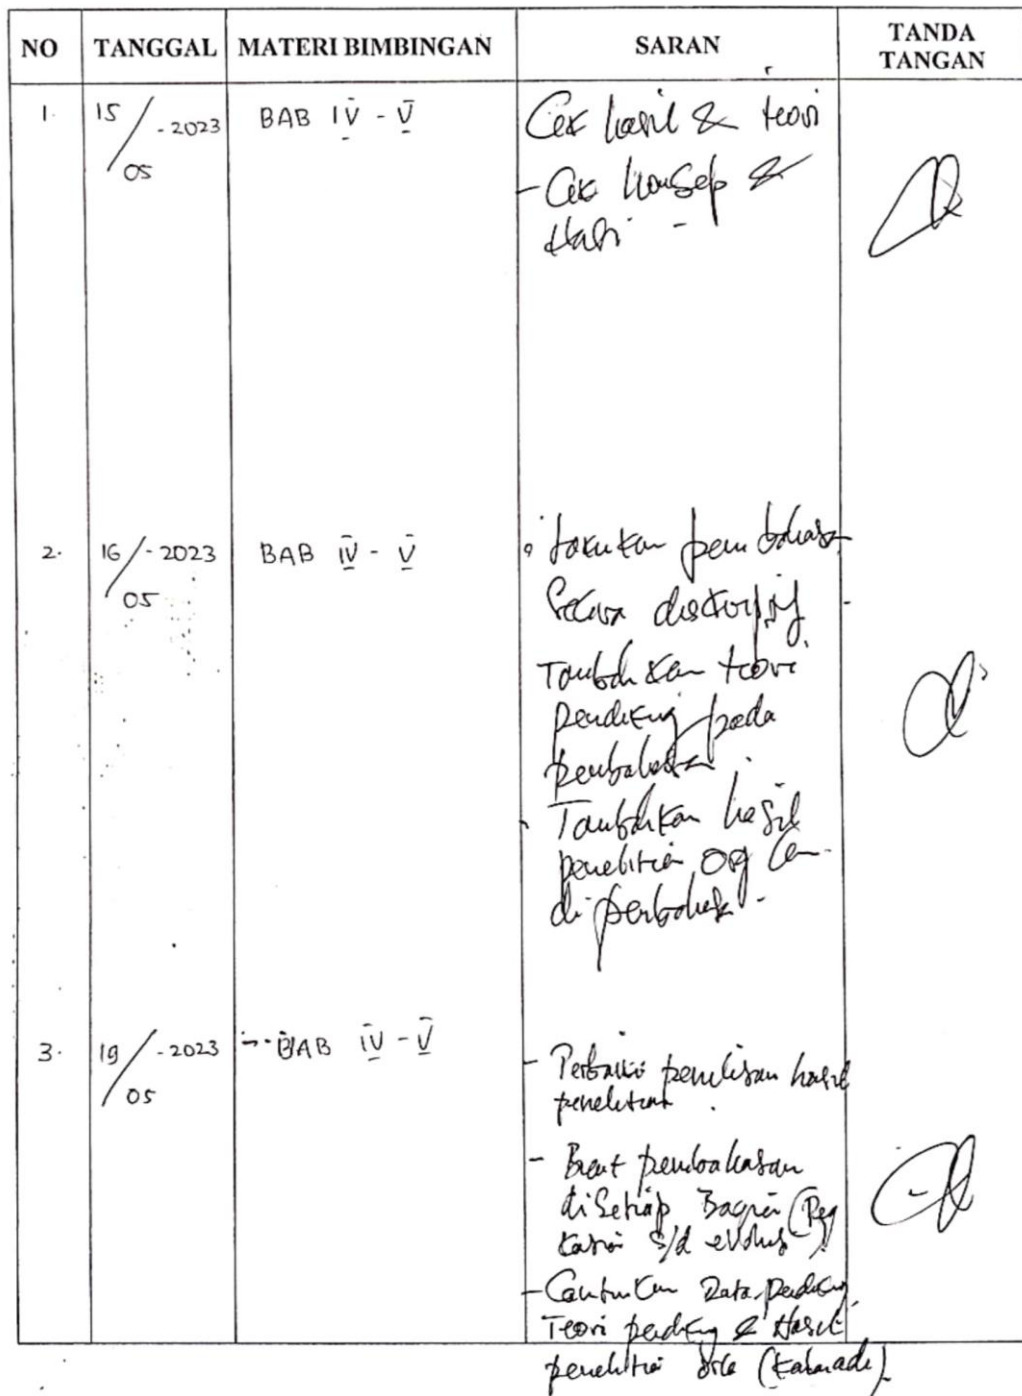 NO TANGGAL MATERI BIMBINGAN SARAN TANDA TANGAN
1. 15/05-2023 BAB IV - V
Cek hasil & teori
- Cek konsep &
Hasil -
2. 16/05-2023 BAB IV - V
Lakukan pembahasan
secara deskriptif
Tambahkan teori
pendukung pada
pembahasan.
- Tambahkan hasil
penelitian org
di pembahasan.
3. 19/05-2023 BAB IV - V
- Perbaiki penulisan hasil
penelitian.
- Buat pembahasan
disetiap Bagian
s/d evaluasi
- Cantumkan Data pendukung,
Teori pendukung & Hasil
penelitian